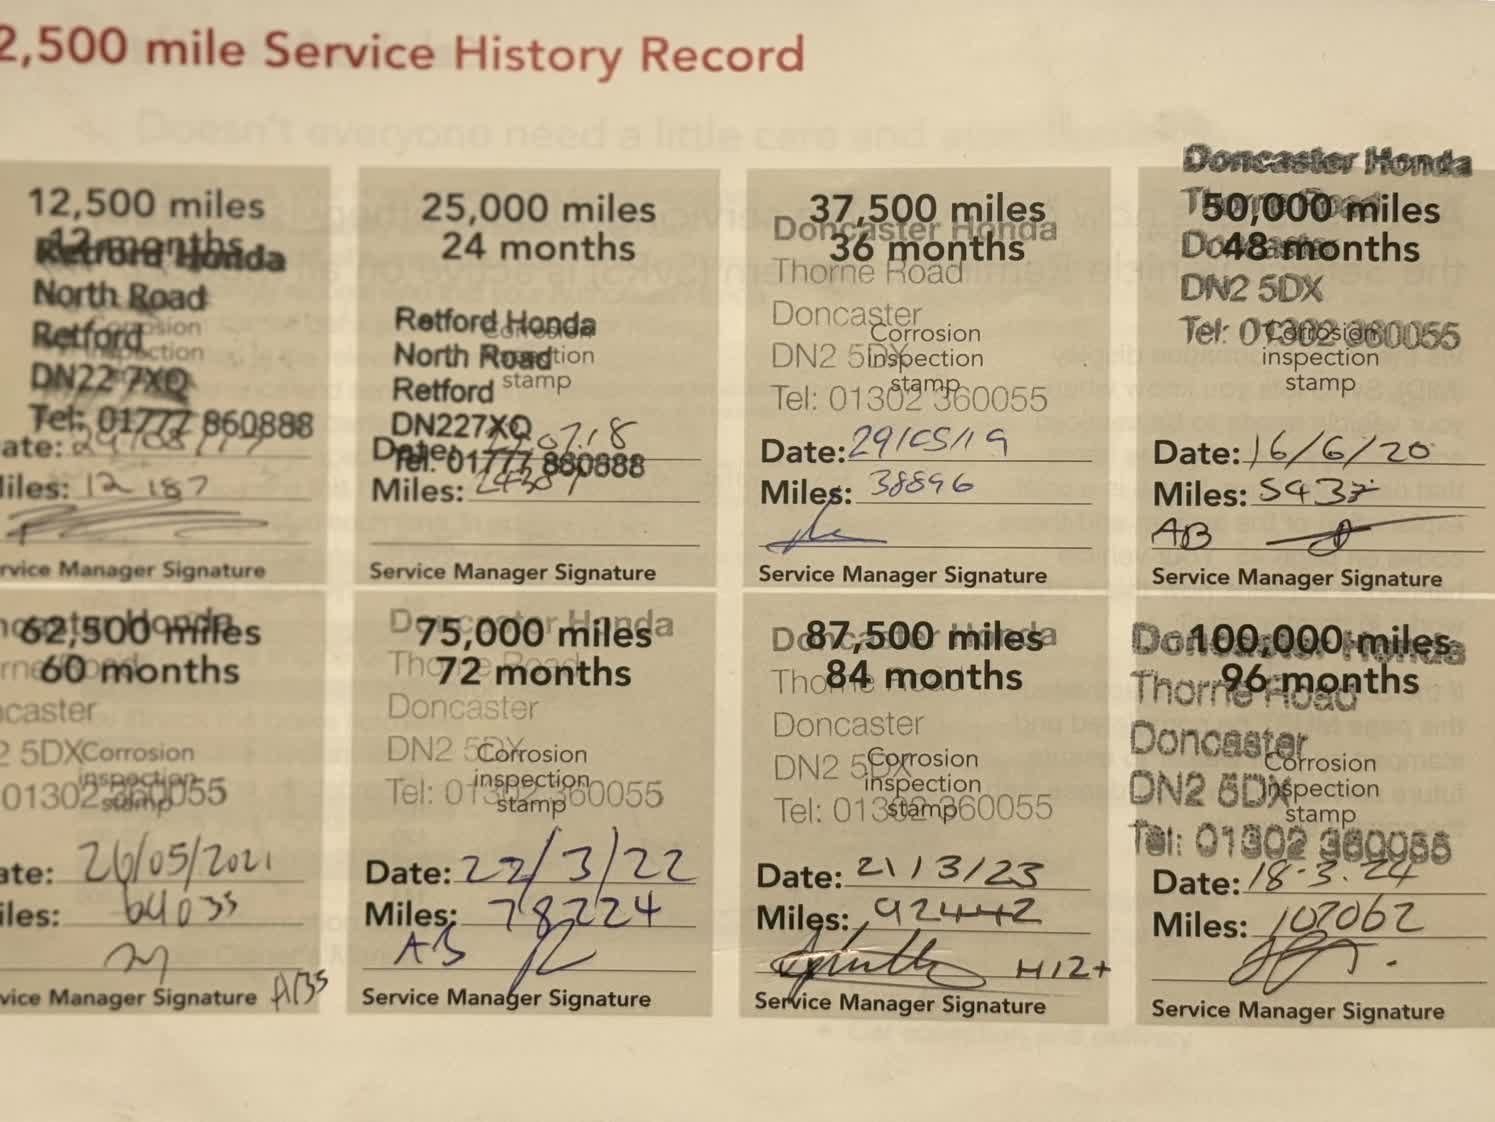 2,500 mile Service History Record
Doesn't everyone need a little care and
12,500 miles
12 months
Retford Honda
North Road
Retford
DN22 7XQ
Tel: 01777 860888
Corrosion
inspection
ate:
iles: 12 187
rvice Manager Signature
25,000 miles
24 months
Retford Honda
North Road
Retford
DN227XQ
Tel: 01777 860888
Corrosion
inspection
stamp
Date: 07.18
Miles:
Service Manager Signature
37,500 miles
36 months
Doncaster Honda
Thorne Road
Doncaster
DN2 5DX
Tel: 01302 360055
Corrosion
inspection
stamp
Date: 29/05/19
Miles: 38896
Service Manager Signature
50,000 miles
48 months
Doncaster Honda
Thorne Road
Doncaster
DN2 5DX
Tel: 01302 360055
Corrosion
inspection
stamp
Date: 16/6/20
Miles: 5437
AB
Service Manager Signature
62,500 miles
60 months
ncaster Honda
rne Road
ncaster
2 5DX
01302 360055
Corrosion
inspection
stamp
ate: 26/05/2021
iles: 64035
vice Manager Signature
75,000 miles
72 months
Doncaster Honda
Thorne Road
Doncaster
DN2 5DX
Tel: 01302 360055
Corrosion
inspection
stamp
Date: 22/3/22
Miles: 78224
AB
Service Manager Signature
87,500 miles
84 months
Doncaster Honda
Thorne Road
Doncaster
DN2 5DX
Tel: 01302 360055
Corrosion
inspection
stamp
Date: 21/3/23
Miles: 92442
H12+
Service Manager Signature
100,000 miles
96 months
Doncaster Honda
Thorne Road
Doncaster
DN2 5DX
Tel: 01302 360055
Corrosion
inspection
stamp
Date: 18.3.24
Miles: 107062
Service Manager Signature